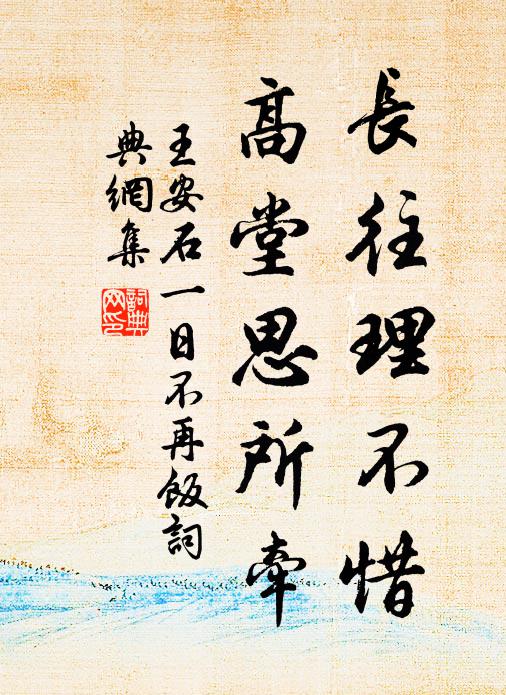 長往理不惜
高堂思所牽
王安石一日不再飯詞
典網集
詞典
网印